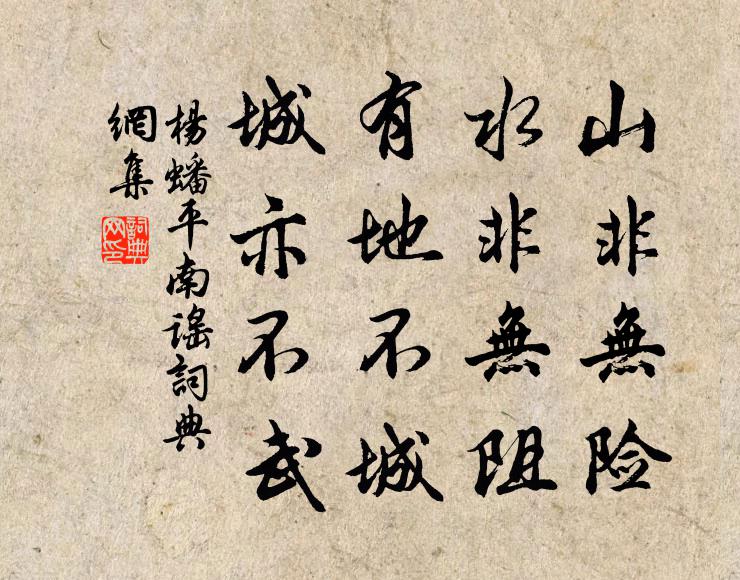 山非無險
水非無阻
有地不城
城亦不武
楊蟠平南謠詞典
網集
詞典
网印